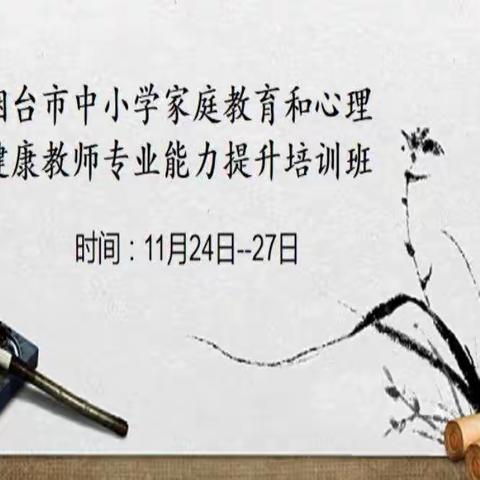 烟台市中小学家庭教育和心理
健康教师专业能力提升培训班
时间：11月24日--27日